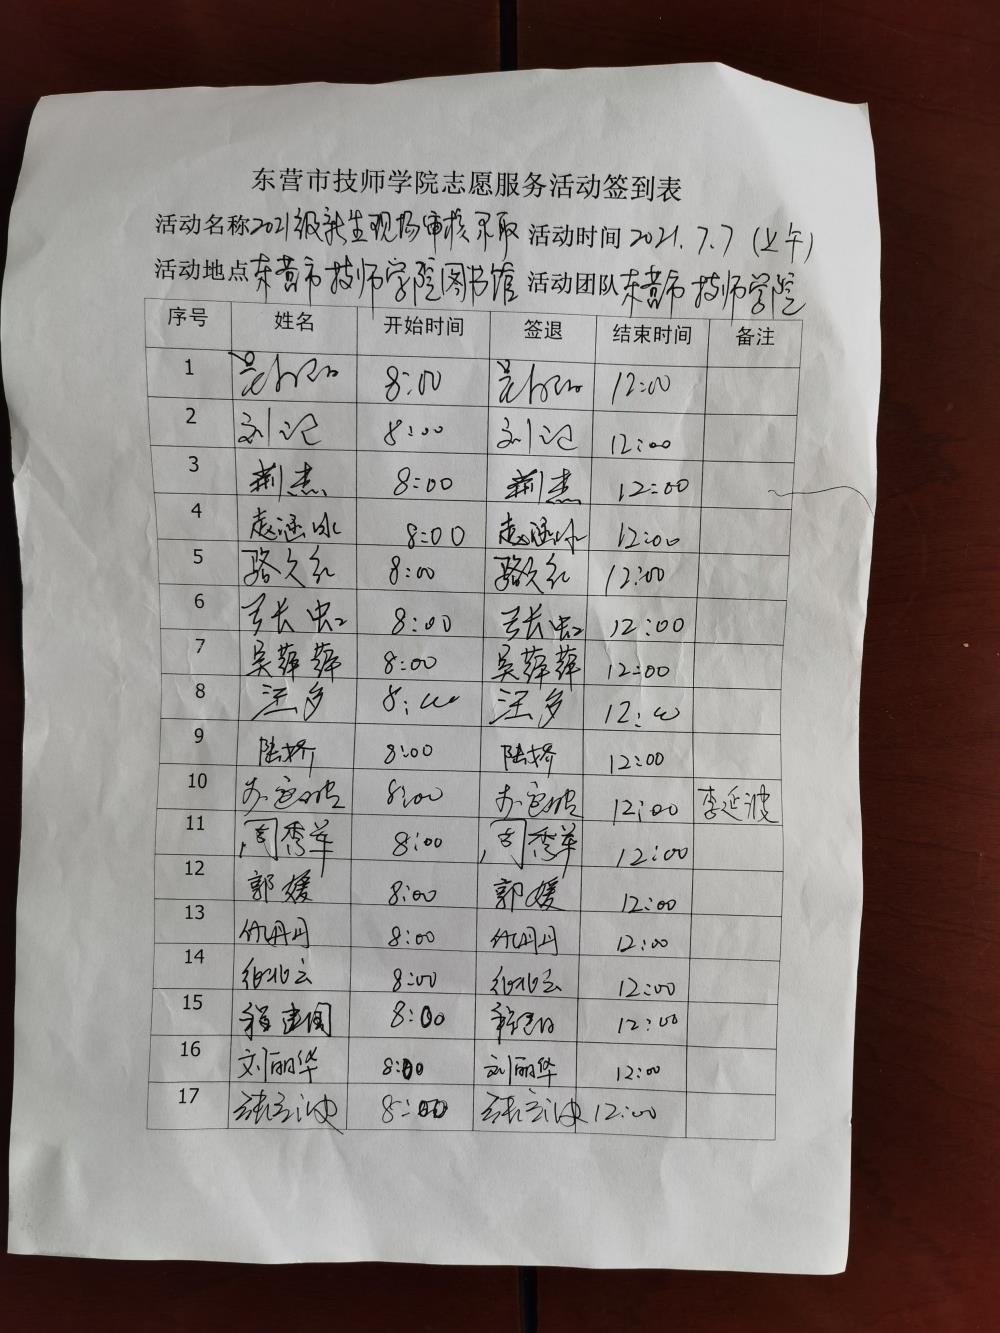 东营市技师学院志愿服务活动签到表
活动名称2021级新生现场审核录取 活动时间2021.7.7(上午)
活动地点东营市技师学院图书馆 活动团队东营市技师学院
序号 姓名 开始时间 签退 结束时间 备注
1 8:00 12:00
2 刘记 8:00 刘记 12:00
3 荆杰 8:00 荆杰 12:00
4 赵涵冰 8:00 赵涵冰 12:00
5 骆久红 8:00 骆久红 12:00
6 弓长虹 8:00 弓长虹 12:00
7 吴萍萍 8:00 吴萍萍 12:00
8 汪多 8:00 汪多 12:00
9 陆娇 8:00 陆娇 12:00
10 8:00 12:00 李延波
11 周秀华 8:00 周秀华 12:00
12 郭媛 8:00 郭媛 12:00
13 8:00 12:00
14 8:00 12:00
15 程建国 8:00 12:00
16 刘丽华 8:00 刘丽华 12:00
17 张立波 8:00 张立波 12:00